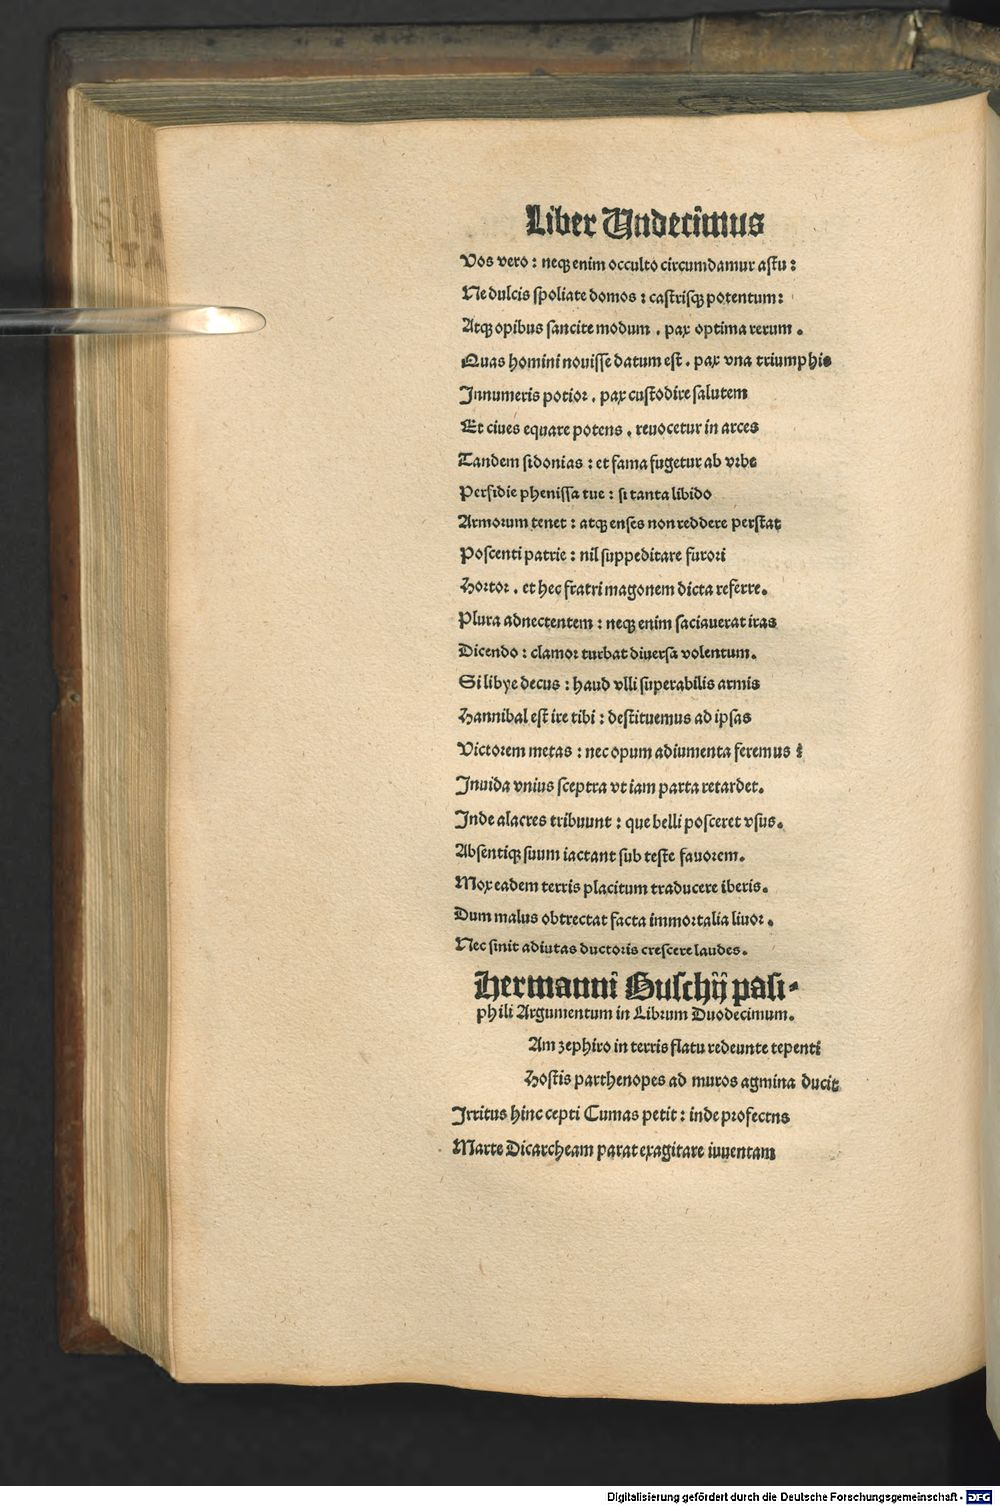 Liber Undecimus
Vos vero : neqꝫ enim occulto circumdamur astu :
Ne dulcis spoliate domos : castrisqꝫ potentum :
Atqꝫ opibus sancite modum . pax optima rerum .
Quas homini nouisse datum est . pax vna triumphis
Innumeris potior . pax custodire salutem
Et ciues equare potens . reuocetur in arces
Tandem sidonias : et fama fugetur ab vrbe
Perfidie phenissa tue : si tanta libido
Armorum tenet : atqꝫ enses non reddere perstat
Poscenti patrie : nil suppeditare furori
Hortor . et hec fratri magonem dicta referre.
Plura adnectentem : neqꝫ enim saciauerat iras
Dicendo : clamor turbat diuersa volentum.
Si libye decus : haud vlli superabilis armis
Hannibal est ire tibi : destituemus ad ipsas
Victorem metas : nec opum adiumenta feremus :
Inuida vnius sceptra vt iam parta retardet.
Inde alacres tribuunt : que belli posceret vsus.
Absentiqꝫ suum iactant sub teste fauorem.
Mox eadem terris placitum traducere iberis.
Dum malus obtrectat facta immortalia liuor.
Nec sinit adiutas ductoris crescere laudes.
Hermanni Buschij pasi-
phili Argumentum in Librum Duodecimum.
Am zephiro in terris flatu redeunte tepenti
Hostis parthenopes ad muros agmina ducit
Irritus hinc cepti Cumas petit : inde profectns
Marte Dicarcheam parat exagitare iuuentam
Digitalisierung gefördert durch die Deutsche Forschungsgemeinschaft - DFG